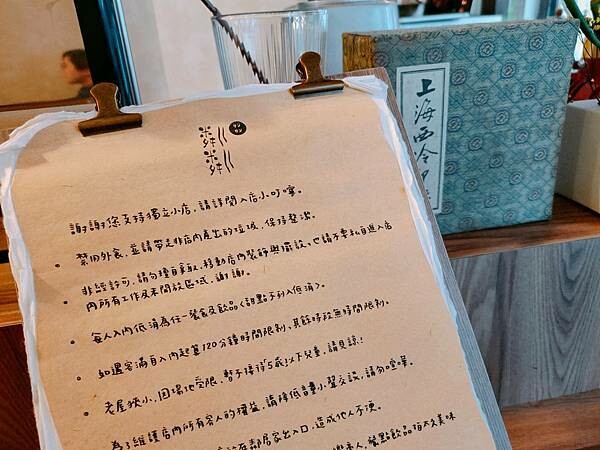 粦粦
謝謝您支持獨立小店，請詳閱入店小叮嚀。
• 禁用外食，並請帶走非店內產出的垃圾，保持整潔。
• 非經許可，請勿擅自拿取、移動店內裝飾與擺設。也請不要私自進入店
內所有工作及未開放區域，謝謝。
• 每人入內低消為任一餐食及飲品（甜點不列入低消）。
• 如遇客滿自入內起算120分鐘時間限制、其餘時段無時間限制。
• 老屋狹小，因場地受限，暫不接待5歲以下兒童，請見諒！
• 為了維護店內所有客人的權益，請降低音量小聲交談，請勿喧嘩。
在鄰居家出入口，造成他人不便。
餐點飲品拍太久美味
上海西令